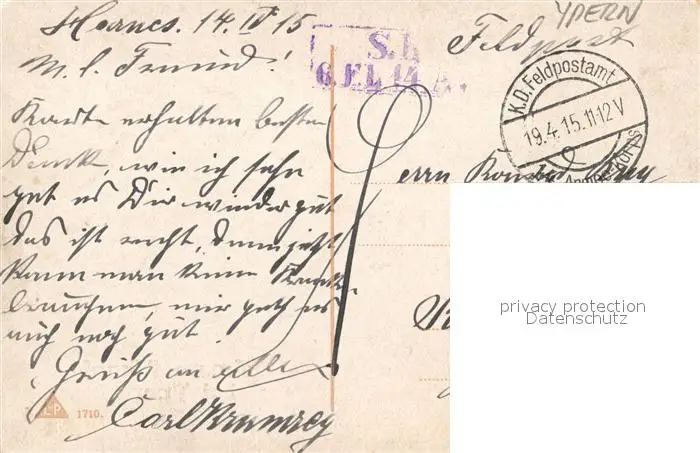 14. IV 15
M. l. Freund!
Karte erhalten besten
Dank, wie ich sehe
geht es Dir wieder gut
das ist recht, denn jetzt
kann man keine
brauchen, mir geht es
auch noch gut.
Gruß an alle
Carl Krumrey
1710.
YPERN
Feldpost
S.B.
6. FL. 14 A.
K.D. Feldpostamt
19.4.15.11-12 V
Armee-Korps
Herrn
privacy protection
Datenschutz